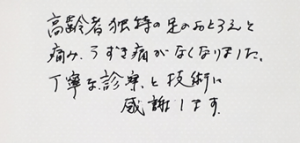 高齢者独特の足のおとろえと
痛み、うずき痛がなくなりました。
丁寧な診察と技術に
感謝します。